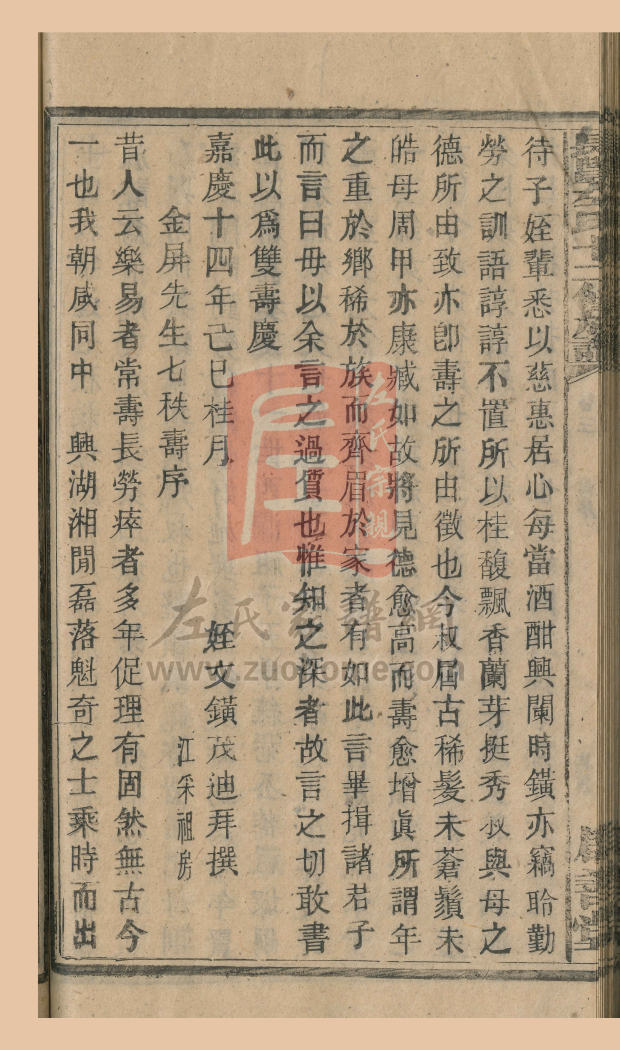 待子姪輩悉以慈惠居心每當酒酣興闌時鐄亦竊聆勤
勞之訓語諄諄不置所以桂馥飄香蘭芽挺秀叔與母之
德所由致亦卽壽之所由徵也今叔屆古稀髮未蒼鬚未
皓母周甲亦康臧如故將見德愈高而壽愈增眞所謂年
之重於鄉稀於族而齊眉於家者有如此言畢揖諸君子
而言曰毋以余言之過質也惟知之深者故言之切敢書
此以爲雙壽慶
嘉慶十四年己巳桂月 姪文鐄茂迪拜撰
金屏先生七秩壽序 江采祖房
昔人云樂易者常壽長勞瘁者多年促理有固然無古今
一也我朝咸同中 興湖湘閒磊落魁奇之士乘時而出
左氏宗親
左氏家譜網
www.zuohome.com